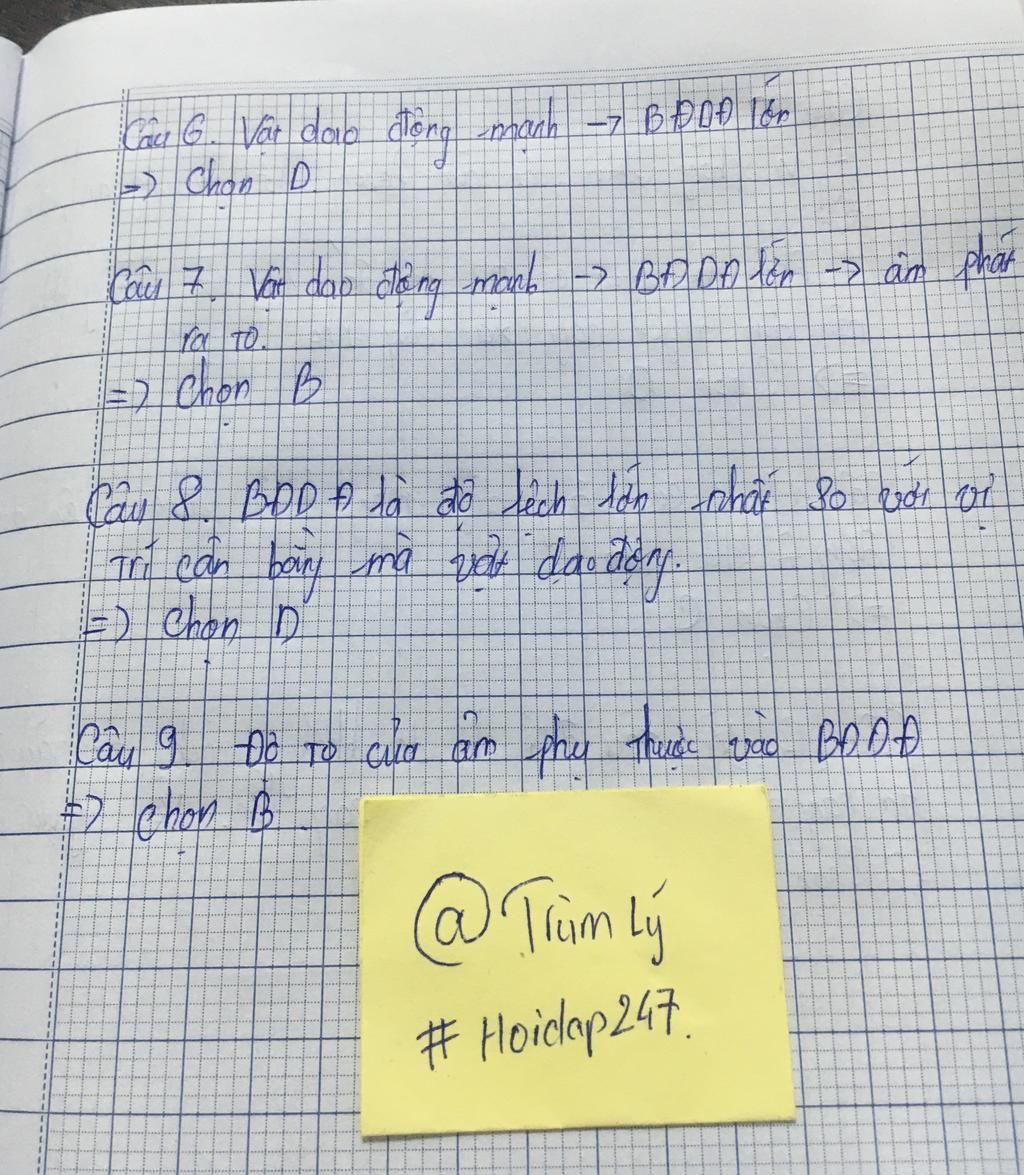 Câu 6. Vật dao động mạnh → BĐDĐ lớn
=> Chọn D
Câu 7. Vật dao động mạnh → BĐDĐ lớn → âm phát
ra to.
=> Chọn B
Câu 8. BĐDĐ là độ lệch lớn nhất so với vị
trí cân bằng mà vật dao động.
=> Chọn D
Câu 9. Độ to của âm phụ thuộc vào BĐDĐ
=> Chọn B.
@Trùm Lý
#Hoidap247.